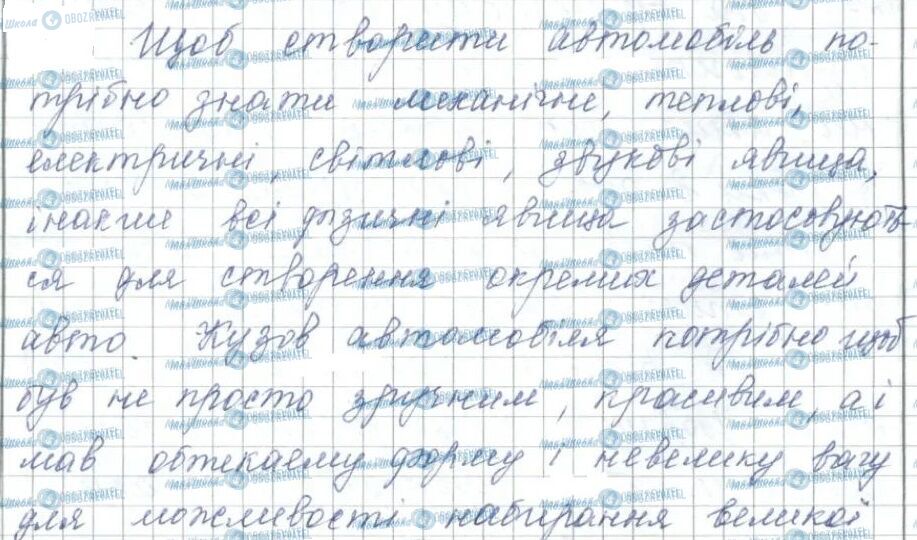 Щоб створити автомобіль по-
трібно знати механічні, теплові,
електричні, світлові, звукові явища,
інакше всі фізичні явища застосовують-
ся для створення окремих деталей
авто. Кузов автомобіля потрібно щоб
був не просто зручним, красивим, а і
мав обтікаему форму і невелику вагу
для можливості набирання великої